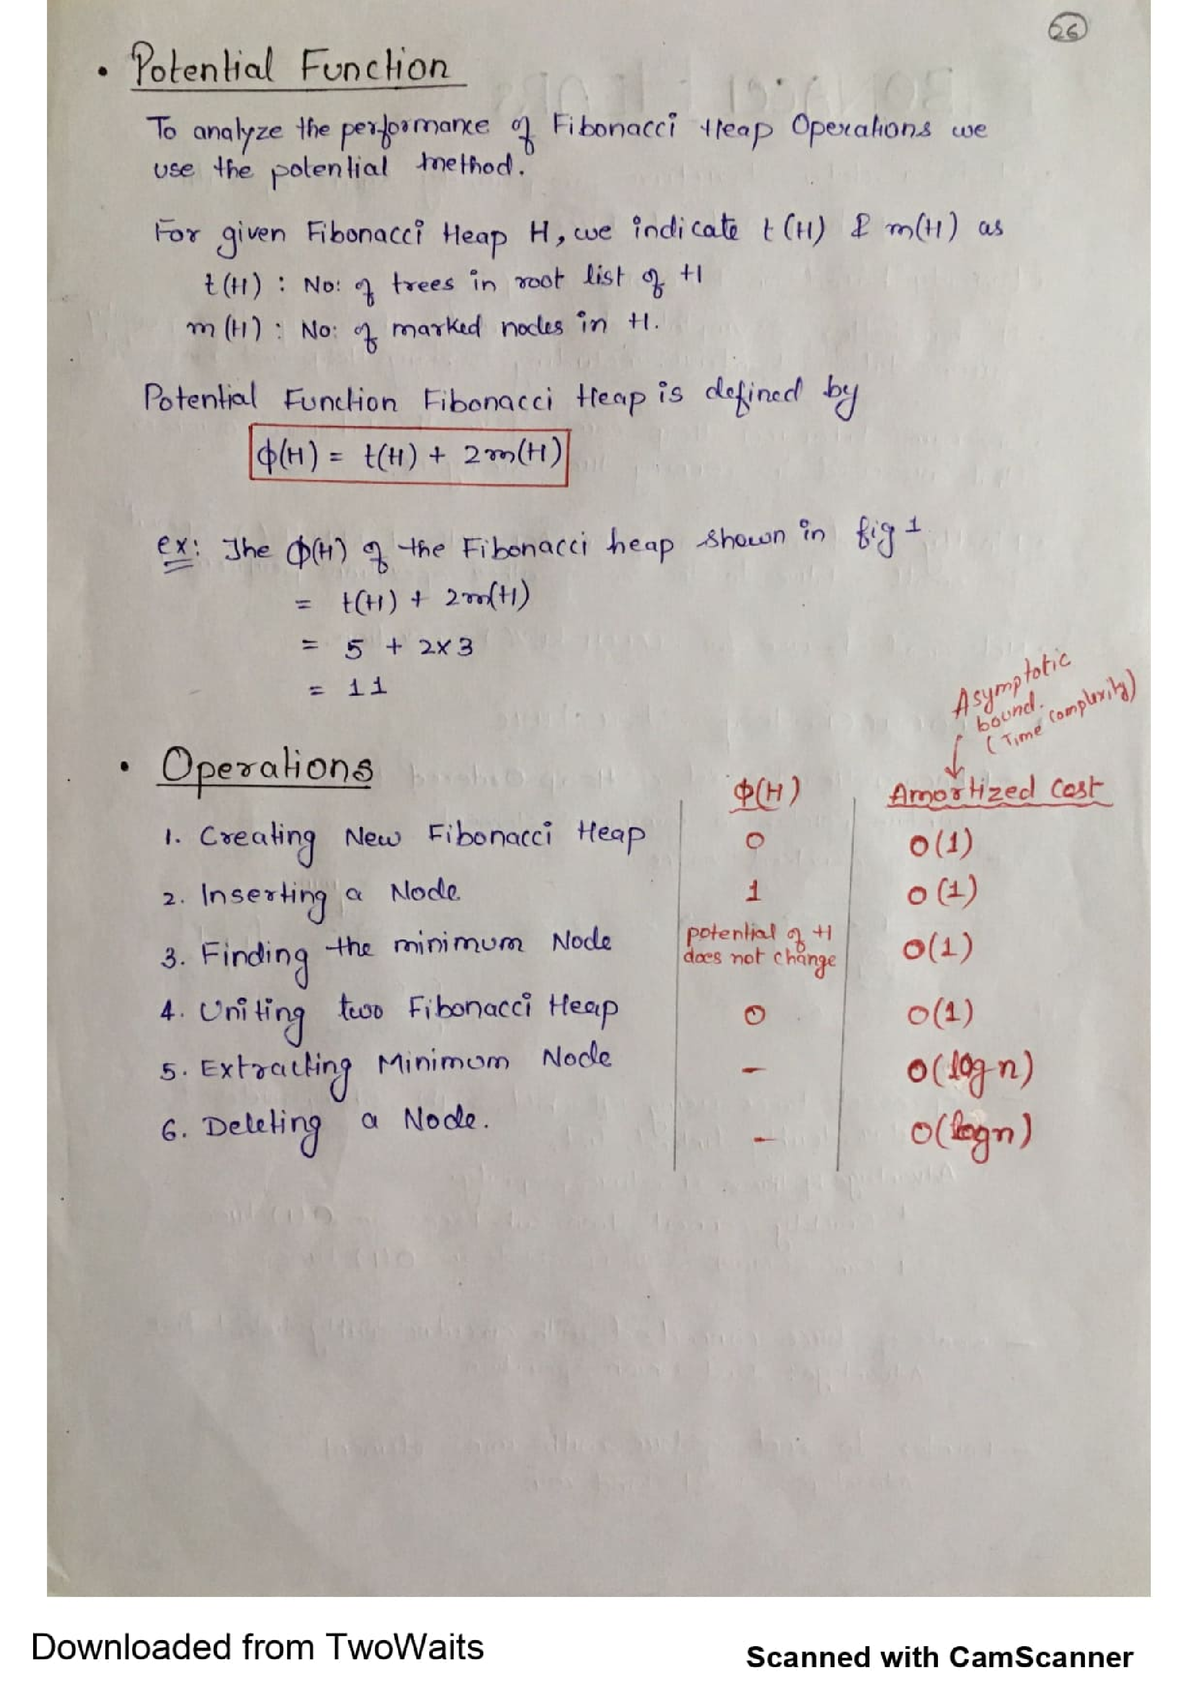 26
• Potential Function
To analyze the performance of Fibonacci Heap Operations we
use the potential method.
For given Fibonacci Heap H, we indicate t(H) & m(H) as
t(H) : No: of trees in root list of H
m(H) : No: of marked nodes in H.
Potential Function Fibonacci Heap is defined by
ϕ(H) = t(H) + 2m(H)
ex: The ϕ(H) of the Fibonacci heap shown in fig 1
= t(H) + 2m(H)
= 5 + 2x3
= 11
Asymptotic
bound.
(Time complexity)
• Operations
ϕ(H) Amortized Cost
1. Creating New Fibonacci Heap 0 O(1)
2. Inserting a Node 1 O(1)
3. Finding the minimum Node potential of H does not change O(1)
4. Uniting two Fibonacci Heap 0 O(1)
5. Extracting Minimum Node - O(log n)
6. Deleting a Node. - O(logn)
Downloaded from TwoWaits
Scanned with CamScanner